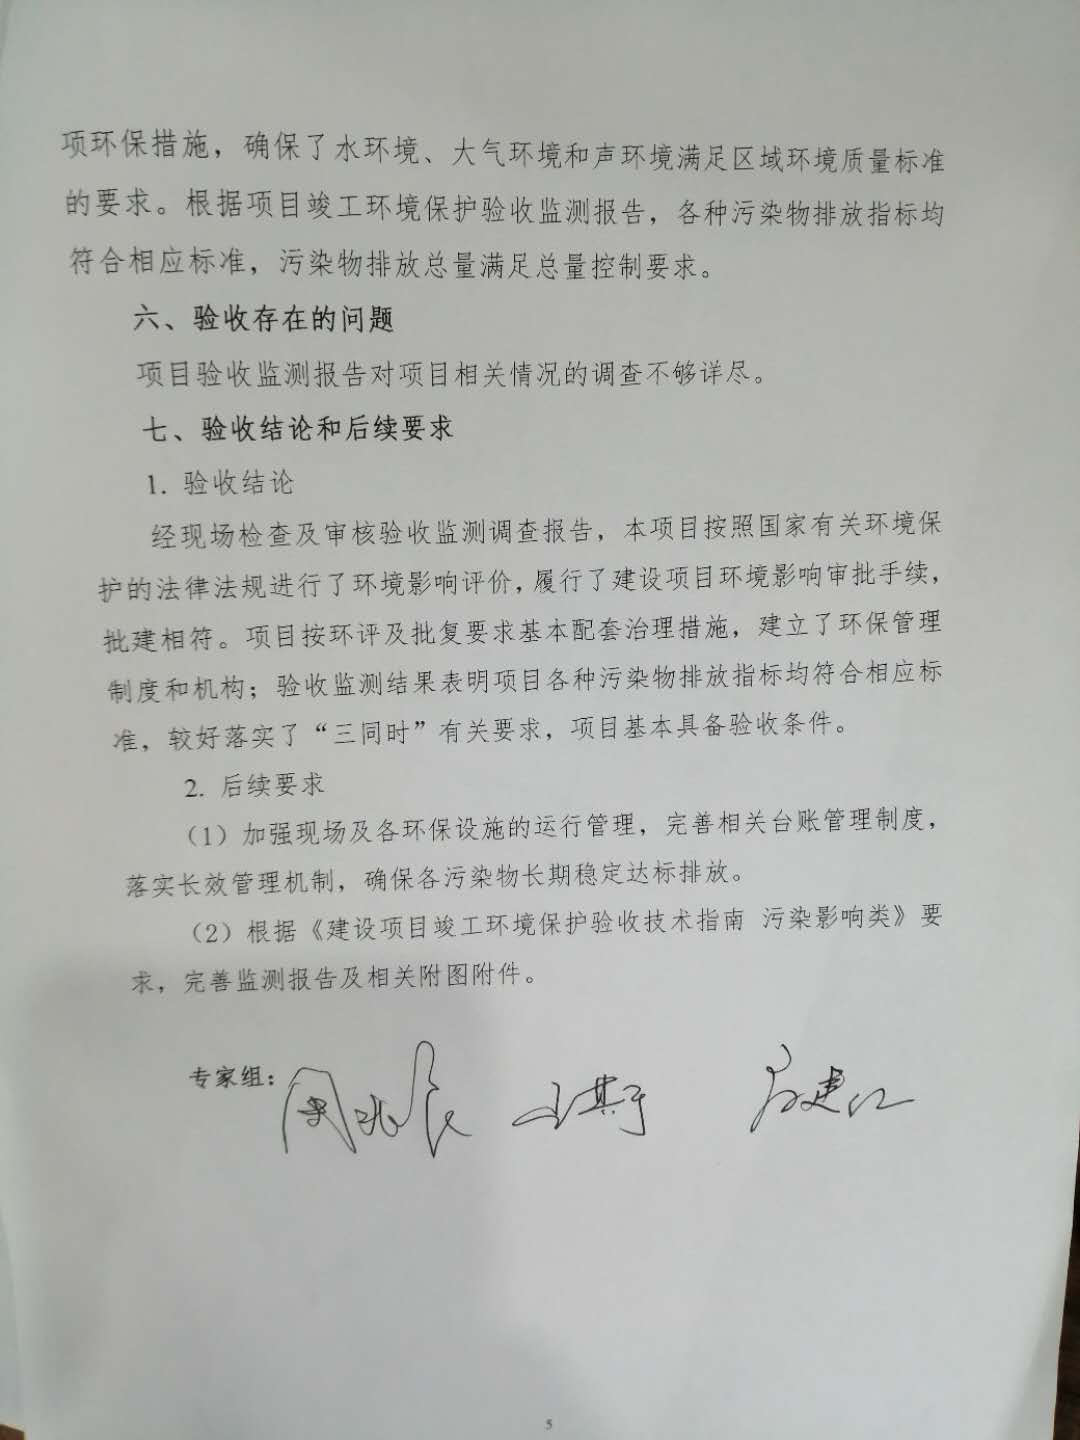 项环保措施，确保了水环境、大气环境和声环境满足区域环境质量标准
的要求。根据项目竣工环境保护验收监测报告，各种污染物排放指标均
符合相应标准，污染物排放总量满足总量控制要求。
六、验收存在的问题
项目验收监测报告对项目相关情况的调查不够详尽。
七、验收结论和后续要求
1. 验收结论
经现场检查及审核验收监测调查报告，本项目按照国家有关环境保
护的法律法规进行了环境影响评价，履行了建设项目环境影响审批手续，
批建相符。项目按环评及批复要求基本配套治理措施，建立了环保管理
制度和机构；验收监测结果表明项目各种污染物排放指标均符合相应标
准，较好落实了“三同时”有关要求，项目基本具备验收条件。
2. 后续要求
（1）加强现场及各环保设施的运行管理，完善相关台账管理制度，
落实长效管理机制，确保各污染物长期稳定达标排放。
（2）根据《建设项目竣工环境保护验收技术指南 污染影响类》要
求，完善监测报告及相关附图附件。
专家组：
5